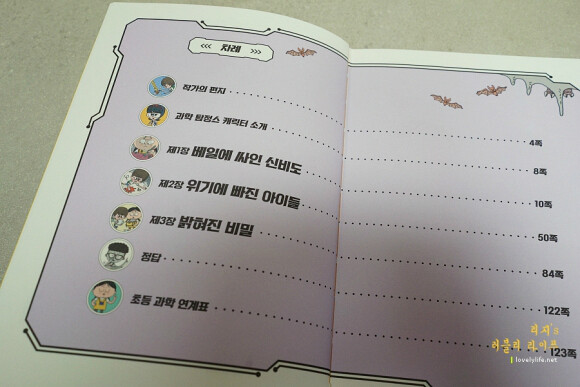 <<< 차례 >>>
작가의 편지 4쪽
과학 탐정스 캐릭터 소개 8쪽
제1장 베일에 싸인 신비도 10쪽
제2장 위기에 빠진 아이들 50쪽
제3장 밝혀진 비밀 84쪽
정답 122쪽
초등 과학 연계표 123쪽
리지's
러블리 라이프
lovelylife.net